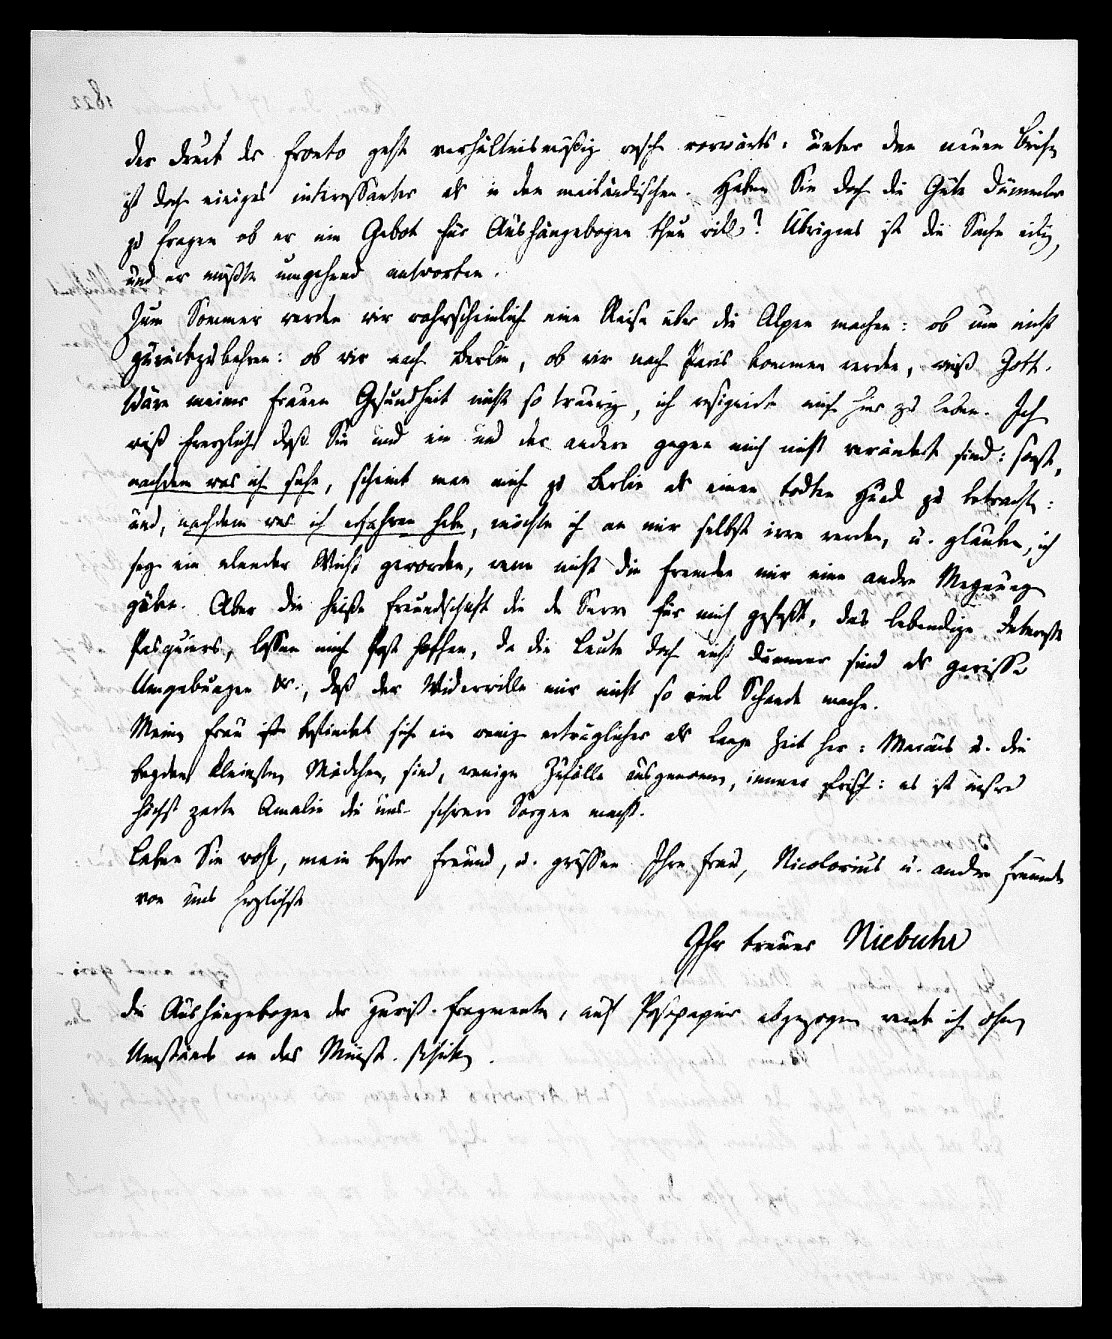 1822
der Druck des Fronto geht verhältnismäßig rasch vorwärts: unter den neuen Briefen
ist doch einiges interessanter als in den mailändischen. Haben Sie doch die Güte Dümmler
zu fragen ob er ein Gebot für Aushängebogen thun will? Übrigens ist die Sache eilig,
und er müßte umgehend antworten.
Zum Sommer werden wir wahrscheinlich eine Reise über die Alpen machen: ob um nicht
zurückzukehren: ob wir nach Berlin, ob wir nach Paris kommen werden, weiß Gott.
Wäre meiner Frauen Gesundheit nicht so traurig, ich resignirte mich hier zu leben. Ich
weiß herzlich daß Sie und ein und der andere gegen mich nicht verändert sind: sonst,
nachdem was ich sehe, scheint man mich zu Berlin als einen todten Hund zu betrachten:
und, nachdem was ich erfahren habe, möchte ich an mir selbst irre werden, u. glauben, ich
sey ein elender Wicht geworden, wenn nicht die Fremden mir eine andre Meynung
gäben. Aber die heiße Freundschaft die de Serre für mich gefaßt, das lebendige Interesse
Pasquiers, lassen mich fast hoffen, da die Leute doch nicht dummer sind als gewisse
Umgebungen &c., daß der Widerwille mir nicht so viel Schande mache.
Meine Frau befindet sich ein wenig erträglicher als lange Zeit her: Marcus u. die
beyden kleinsten Mädchen, sind, wenige Zufälle ausgenommen, immer frisch: es ist unsre
höchst zarte Amalie die uns schwere Sorgen macht.
Leben Sie wohl, mein bester Freund, u. grüssen Ihre Frau, Nicolovius u. andre Freunde
von uns herzlichst
Ihr treuer Niebuhr
die Aushängebogen der jurist. Fragmente, auf Postpapier abgezogen werde ich ohne
Umstände an das Minist. schicken.